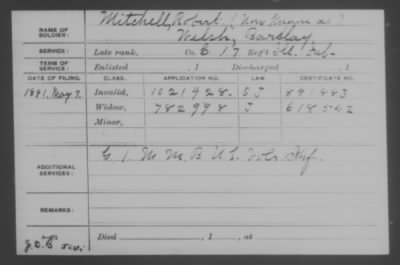 NAME OF SOLDIER: Mitchell, Robert (Now known as)
Welsh, Barclay
SERVICE: Late rank, Co. B. 17 Reg't Ill. Inf.
TERM OF SERVICE: Enlisted , 1 Discharged , 1
DATE OF FILING. CLASS. APPLICATION NO. LAW. CERTIFICATE NO.
1891, May 7. Invalid, 1021928. J 891883
Widow, 782998 J 618542
Minor,
ADDITIONAL SERVICES: G 1 M M B U.S. Vols. Inf.
REMARKS:
Died , 1 , at